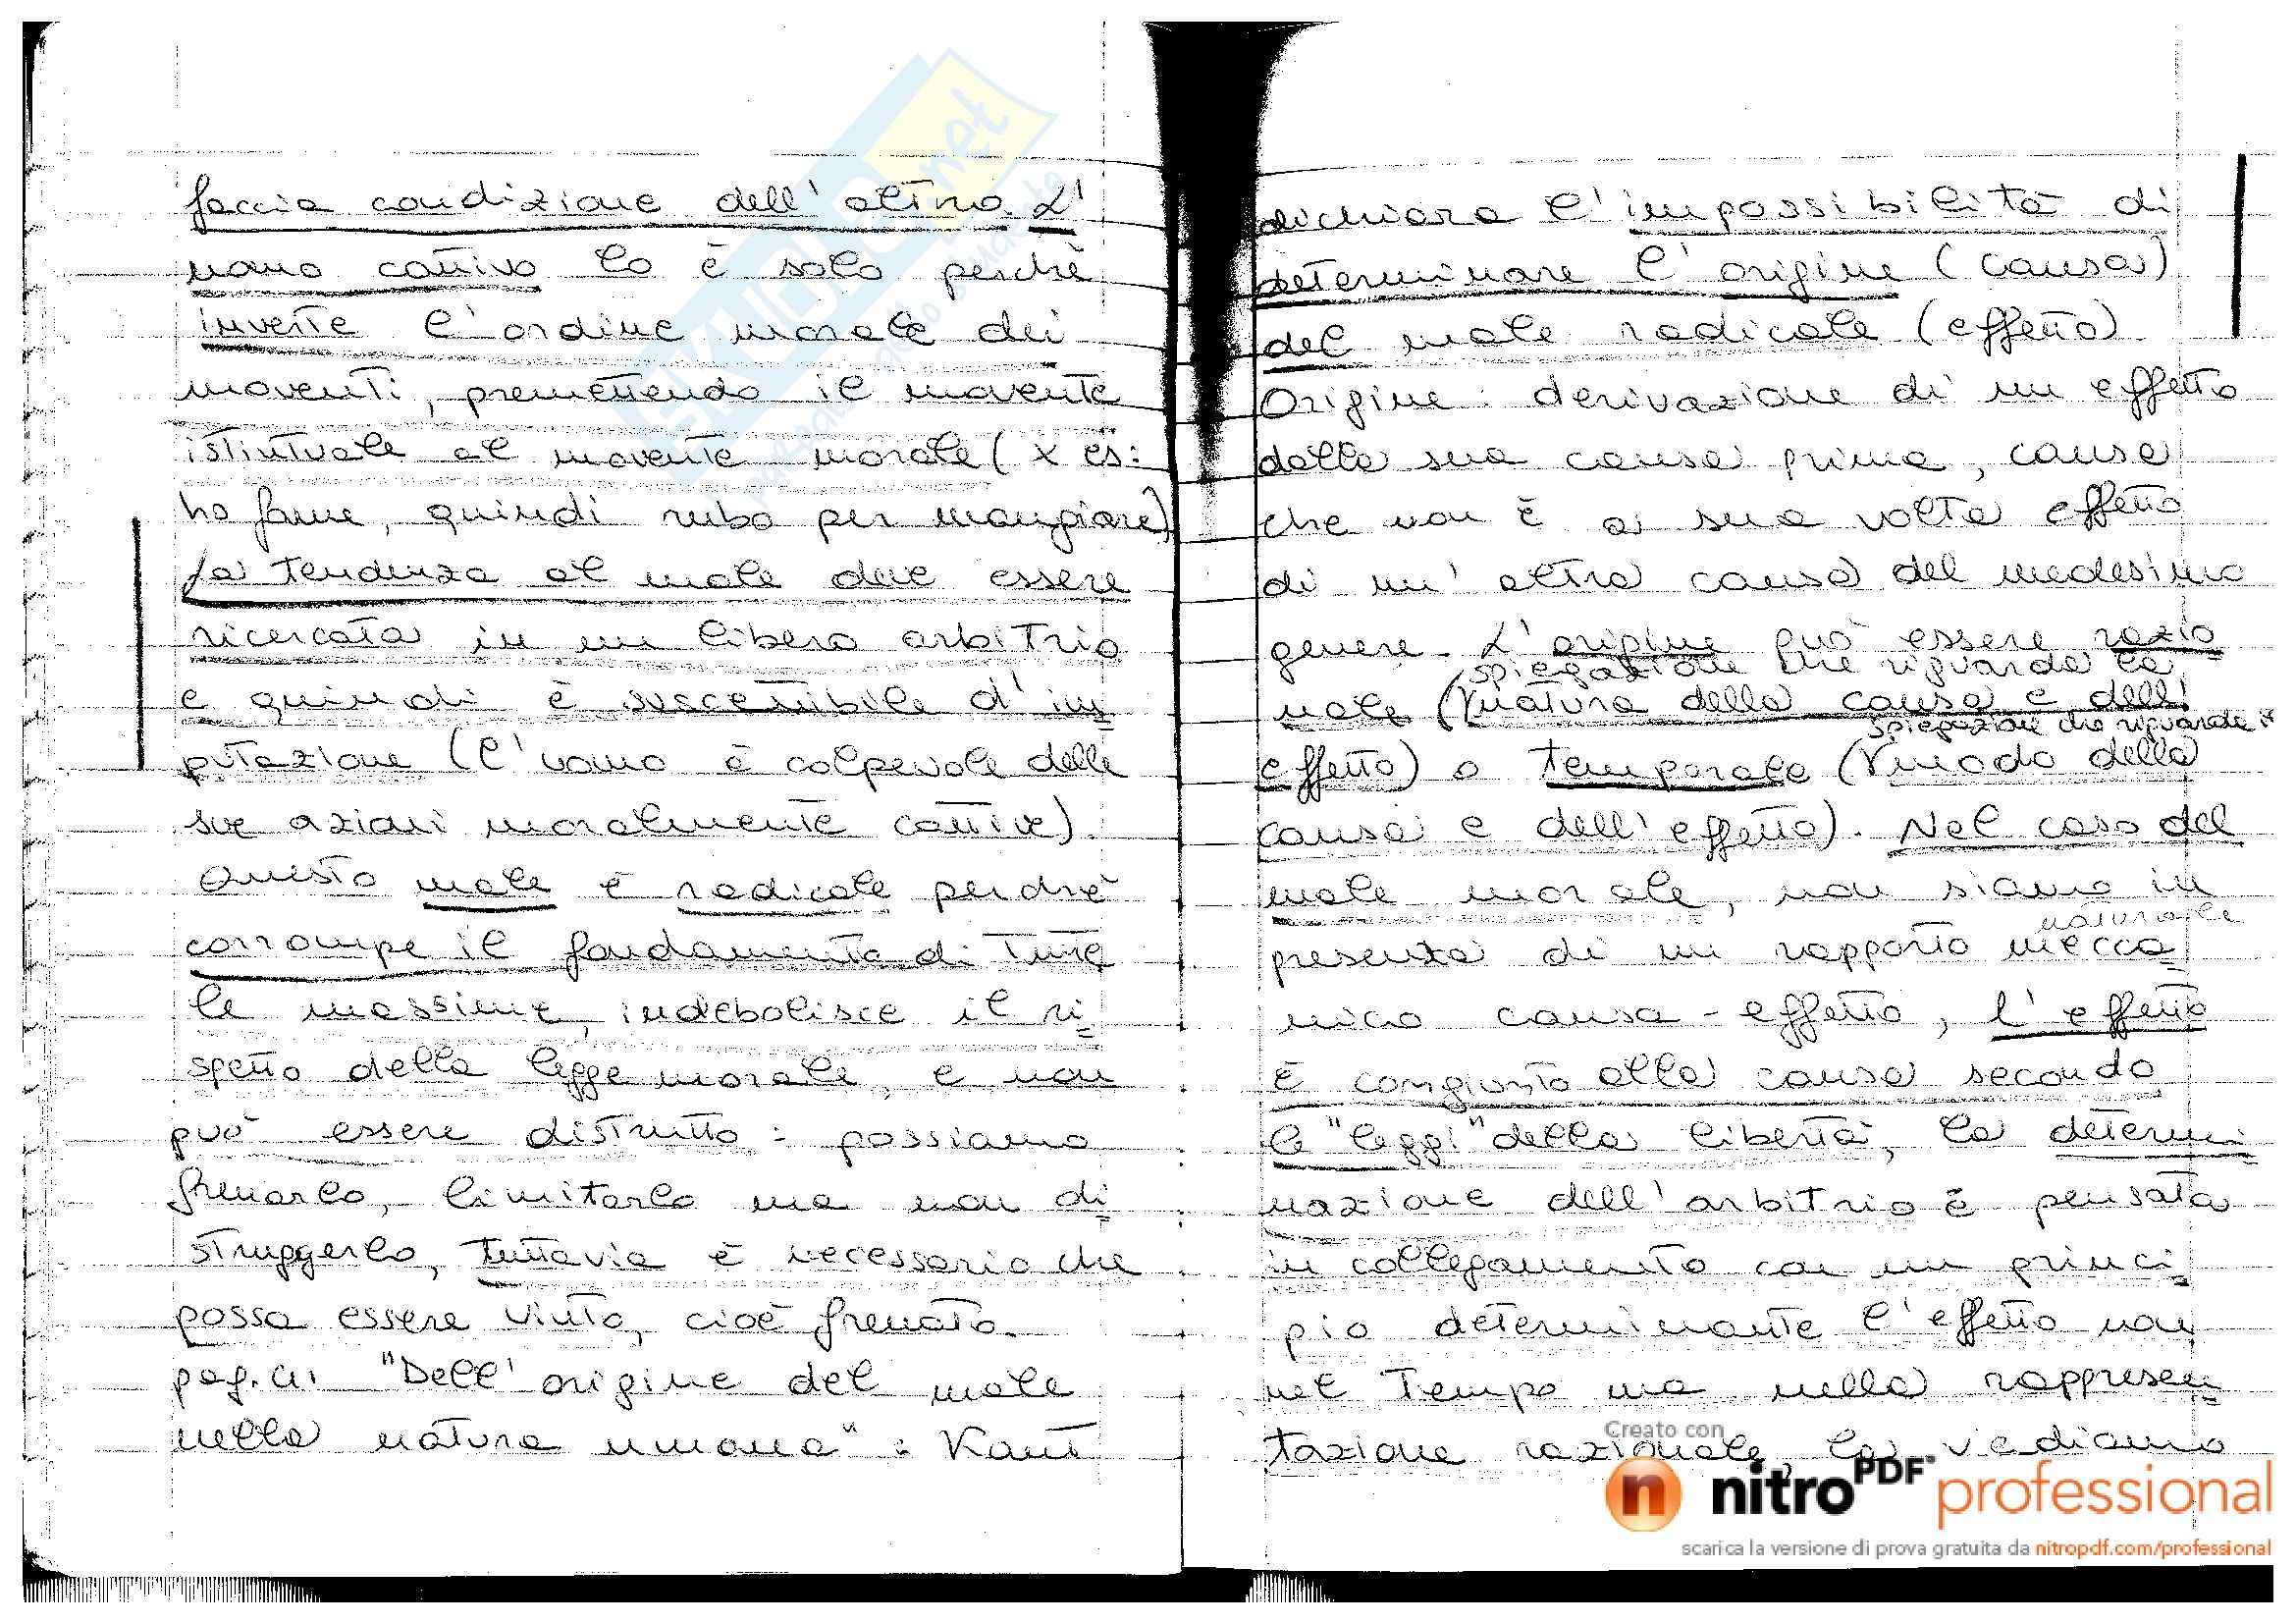 faccia condizione dell'altro. L'
uomo cattivo lo è solo perchè
inverte l'ordine morale dei
moventi, premettendo il movente
istintuale al movente morale (x es:
ho fame, quindi rubo per mangiare)
La tendenza al male deve essere
ricercata in un libero arbitrio
e quindi è suscettibile d'im
putazione (l'uomo è colpevole delle
sue azioni moralmente cattive).
Questo male è radicale perchè
corrompe il fondamento di tutte
le massime, indebolisce il ri
spetto della legge morale, e non
può essere distrutto: possiamo
frenarlo, limitarlo ma non di
struggerlo, tuttavia è necessario che
possa essere vinto, cioè frenato.
pag. 41 "Dell'origine del male
nella natura umana": Kant
dichiara l'impossibilità di
determinare l'origine (causa)
del male radicale (effetto)
Origine: derivazione di un effetto
dalla sua causa prima, causa
che non è a sua volta effetto
di un'altra causa del medesimo
genere. L'origine può essere razio
spiegazione che riguarda la
nale (V natura della causa e dell'
spiegazione che riguarda il
effetto) o temporale (V modo della
causa e dell'effetto). Nel caso del
male morale, non siamo in
naturale
presenza di un rapporto mecca
nico causa-effetto, l'effetto
è congiunto alla causa secondo
le "leggi" della libertà, la determi
nazione dell'arbitrio è pensata
in collegamento con un princi
pio determinante l'effetto non
nel tempo ma nella rappresen
tazione razionale, la vediamo
Creato con
nitro PDF professional
scarica la versione di prova gratuita da nitropdf.com/professional